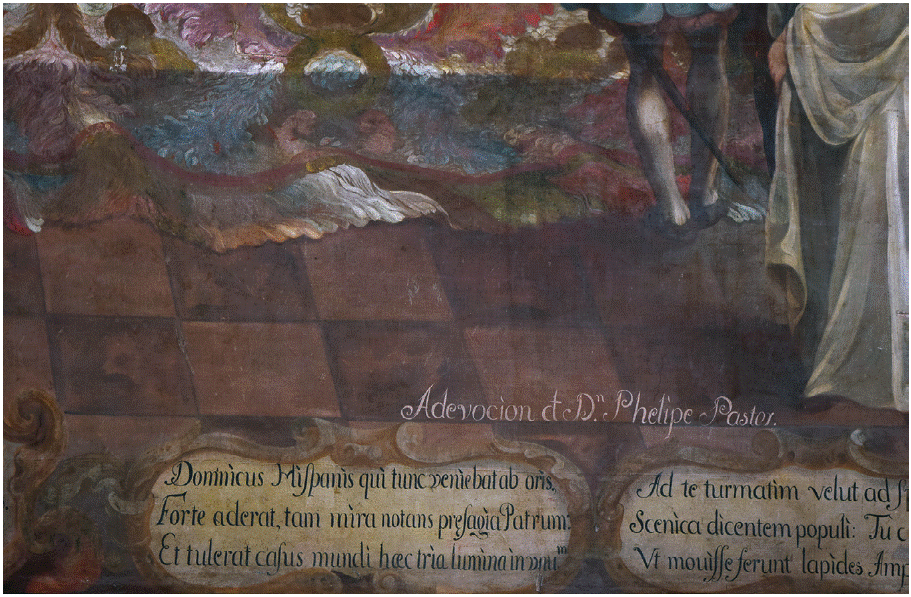 Adevocion d D.ⁿ Phelipe Pastor.
Dominicus Hiſpanis qui tunc veniebat ab oris,
Forte aderat, tam mira notans preſagia Patrum:
Et tulerat caſus mundi hæc tria lumina in vnu.ᵐ
Ad te turmatim velut ad
Scenica dicentem populi: Tu
Vt mouiſſe ferunt lapides